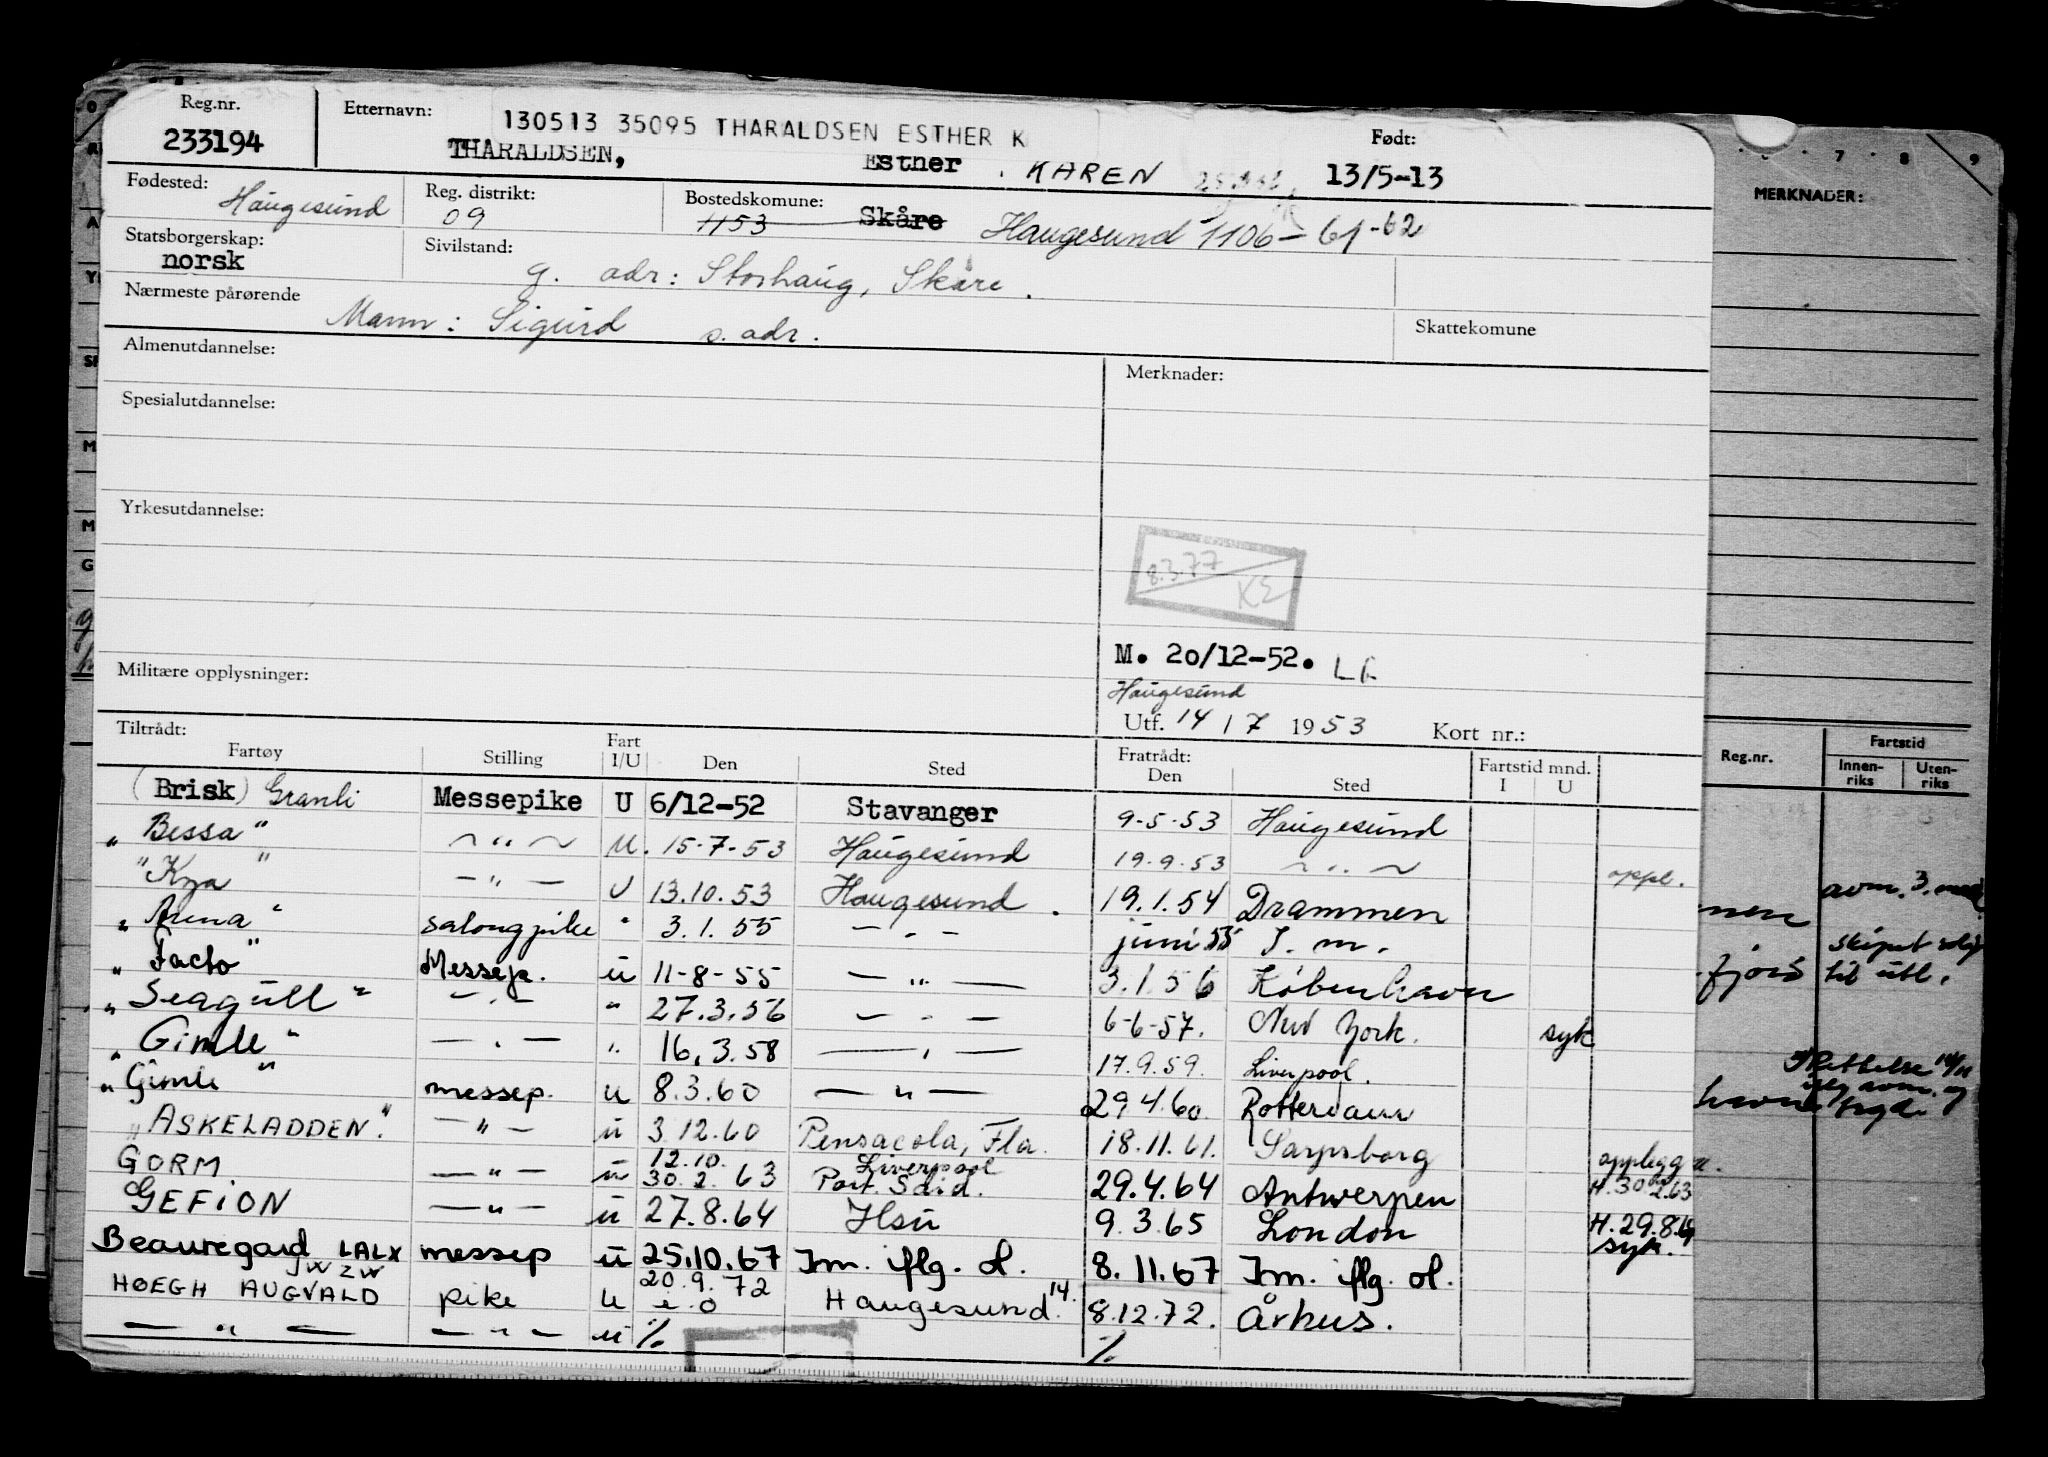 Reg.nr. Etternavn: 130513 35095 THARALDSEN ESTHER K Født:
233194 THARALDSEN, Esther KAREN 13/5-13
Fødested: Haugesund Reg. distrikt: 09 Bostedskomune: 1153 Skåre Haugesund 1106 - 61-62
Statsborgerskap: norsk Sivilstand: g. adr: Storhaug, Skåre.
Nærmeste pårørende Mann: Sigurd s. adr. Skattekomune
Almenutdannelse: Merknader:
Spesialutdannelse:
Yrkesutdannelse:
8.3.77 KE
M. 20/12-52.
Militære opplysninger: Haugesund
Utf. 14 / 7 1953 Kort nr.:
Tiltrådt: Fratrådt:
Fartøy Stilling Fart I/U Den Sted Den Sted Fartstid mnd. I U
(Brisk) Granli Messepike U 6/12-52 Stavanger 9-5-53 Haugesund
"Bessa" — " — U. 15-7-53 Haugesund 19.9.53 — " — oppl.
"Kya" — " — U 13.10.53 Haugesund. 19.1.54 Drammen
"Anna" salongpike " 3.1.55 — " — juni 55 I. m.
"Facto" Messep. u 11-8-55 — " — 3.1.56 København
"Seagull" — " — " 27.3.56 — " — 6-6-57. New York. syk
"Gimle" — " — " 16.3.58 — " — 17.9.59. Liverpool.
"Gimle" messep. u 8.3.60 — " — 29.4.60. Rotterdam
"ASKELADDEN." — " — u 3.12.60 Pensacola, Fla. 18.11.61. Sarpsborg opplegg
12.10. Liverpool
GORM — " — u 30.2.63 Port. Said. 29.4.64 Antwerpen H.30.2.63
GEFION — " — u 27.8.64 Hsu 9.3.65 London H.29.8.64 syk.
Beauregard LALX messep u 25.10.67 Im. iflg. ol. 8.11.67 Im. iflg ol.
JWZW 20.9.72
HØEGH AUGVALD pike u Haugesund 14. 8.12.72. Århus.
— " — — " — u % %
7 8 9
MERKNADER:
Reg.nr. Fartstid
Innen- riks Uten- riks